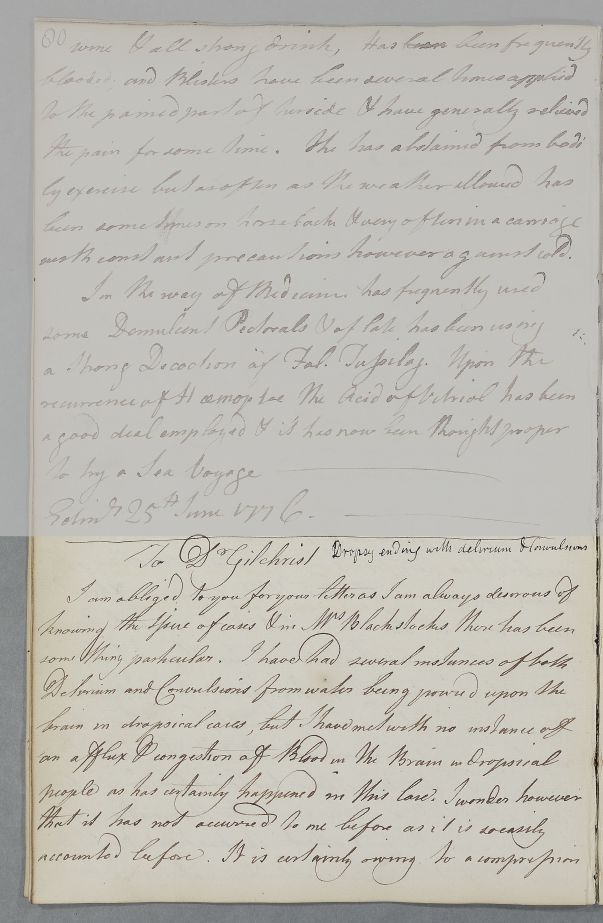 60
wine & all strong drink, Has been been frequently
blooded; and Blisters have been several times applied
to the pained part of her side & have generally relieved
the pain for some time. She has abstained from bodi
ly exercise but as often as the weather allowed has
been some times on horseback & very often in a carriage
with constant precautions however against cold.
In the way of Medicine has frequently used
some Demulcent Pectorals & of late has been using
a strong Decoction of Fol. Tussilag. Upon the
recurrence of Hæmoptoe the Acid of Vitriol has been
a good deal employed & it has now been thought proper
to try a Sea Voyage
Edinr 25th June 1776.
To Dr Gilchrist Dropsy ending with delirium & Convulsions
I am obliged to you for your letter as I am always desirous of
knowing the Issue of cases & in Mrs Blackstocks there has been
some thing particular. I have had several instances of both
Delirium and Convulsions from water being poured upon the
brain in dropsical cases, but I have met with no instance off
an afflux & congestion of Blood in the Brain in dropsical
people as has certainly happened in this Case. I wonder however
that it has not occurred to me before as it is so easily
accounted before. It is certainly owing to a compression